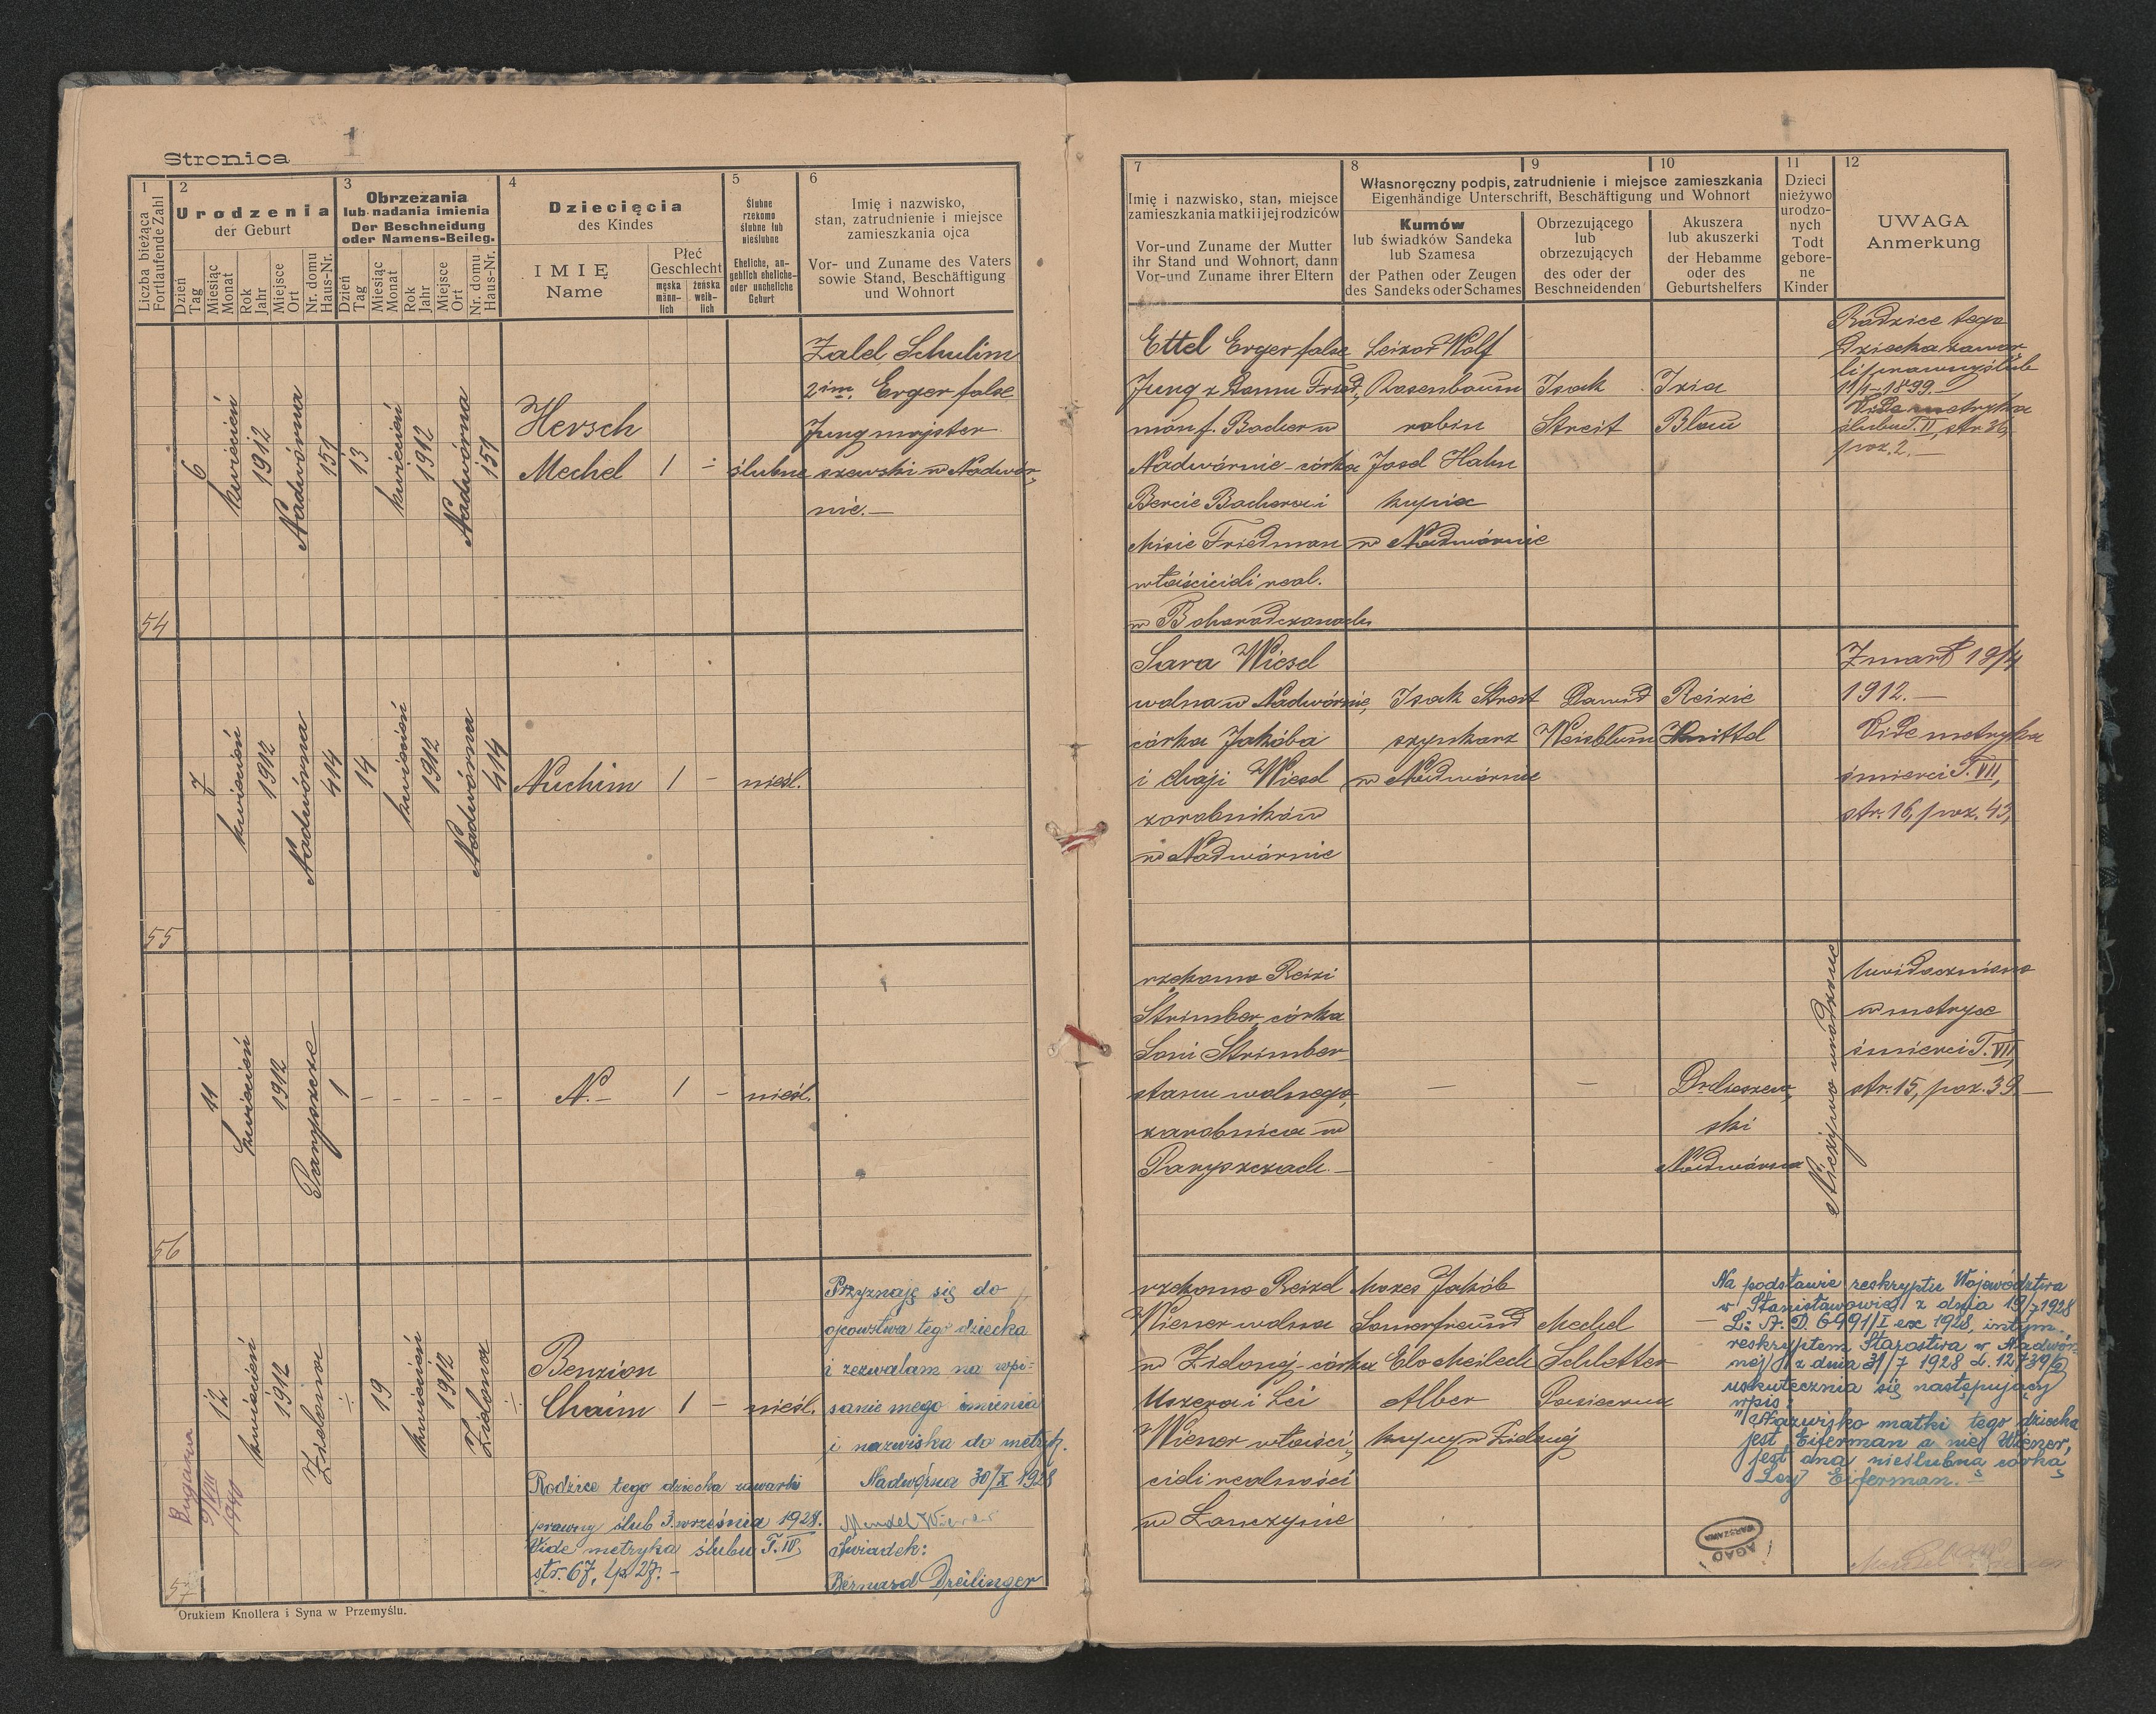 Stronica 1
1
2
3
4
5
6
Liczba bieżąca
Fortlaufende Zahl
Urodzenia
der Geburt
Dzień
Tag
Miesiąc
Monat
Rok
Jahr
Miejsce
Ort
Nr. domu
Haus-Nr.
Obrzezania
lub nadania imienia
Der Beschneidung
oder Namens-Beileg.
Dzień
Tag
Miesiąc
Monat
Rok
Jahr
Miejsce
Ort
Nr. domu
Haus-Nr.
Dziecięcia
des Kindes
IMIĘ
Name
Płeć
Geschlecht
męska
männ-
lich
żeńska
weib-
lich
Ślubne
rzekomo
ślubne lub
nieślubne
Eheliche, an-
geblich eheliche-
oder uneheliche
Geburt
Imię i nazwisko,
stan, zatrudnienie i miejsce
zamieszkania ojca
Vor- und Zuname des Vaters
sowie Stand, Beschäftigung
und Wohnort
54
6
kwiecień
1912
Nadwórna
151
13
kwiecień
1912
Nadwórna
151
Hersch
Mechel
1
-
ślubne
Zalel Schulim
2 im. Erger false
Jung majster
szewski w Nadwór-
nie.-
55
7
kwiecień
1912
Nadwórna
414
14
kwiecień
1912
Nadwórna
414
Nuchim
1
-
nieśl.
56
11
kwiecień
1912
Paryszcze
1
- - - - -
N.-
1
-
nieśl.
57
12
kwiecień
1912
Zielona
÷
19
kwiecień
1912
Zielona
÷
Benzion
Chaim
1
-
nieśl.
Przyznaję się do
ojcowstwa tego dziecka
i zezwalam na wpi-
sanie mego imienia
i nazwiska do metryk.
Nadwórna 30/X 1928
Mendel Wiener
Świadek:
Bernard Dreilinger
Rodzice tego dziecka zawarli
prawny ślub 3 września 1928.
Vide metryka ślubu T. III
str. 67, lp 27.-
9/VIII
1940
Drukiem Knollera i Syna w Przemyślu.
7
8
9
10
11
12
Imię i nazwisko, stan, miejsce
zamieszkania matki i jej rodziców
Vor-und Zuname der Mutter
ihr Stand und Wohnort, dann
Vor-und Zuname ihrer Eltern
Własnoręczny podpis, zatrudnienie i miejsce zamieszkania
Eigenhändige Unterschrift, Beschäftigung und Wohnort
Kumów
lub świadków Sandeka
lub Szamesa
der Pathen oder Zeugen
des Sandeks oder Schames
Obrzezującego
lub
obrzezujących
des oder der
Beschneidenden
Akuszera
lub akuszerki
der Hebamme
oder des
Geburtshelfers
Dzieci
nieżywo
urodzo-
nych
Todt
gebore-
ne
Kinder
UWAGA
Anmerkung
Ettel Erger false
Jung z Domu Fried-
man f. Bacher w
Nadwórnie - córka
Bercie Bacher i
Misie Friedman
właścicieli real.
w Bohorodczanach
Leizor Wolf
Rosenbaum
rabin
Josel Hahn
kupiec
w Nadwórnie
Isak
Streit
Izia
Blau
Rodzice tego
dziecka zawar
li prawny ślub
1899.-
Vide metryka
ślubu T. II, str. 36,
poz. 2.-
Sara Wiesel
wolna w Nadwórnie,
córka Jakóba
i Chaji Wiesel
zarobników
w Nadwórnie
Isak Streit
szynkarz
w Nadwórnie
Dawid
Weisblum
Reizie
Knittel
Zmarł 19/4
1912.-
Vide metryka
śmierci T. VII,
str. 16, poz. 43,
rzekomo Reizi
Strimber córka
Soni Strimber
stanu wolnego,
zarobnica w
Paryszczach.-
-
-
ski
Nadwórna
Nieżywo urodzone
Uwidoczniono
w metryce
śmierci T. VII,
str. 15, poz. 39-
rzekomo Reizel
Wiener wolna
w Zielonej - córka
Uszera i Lei
Wiener właści-
cieli realności
w Łanczynie
Mozes Jakób
Somerfreund
Elo Meilech
Alber
kupcy w Zielonej
Mechel
Schletter
Pasieczna
Na podstawie reskryptu Województwa
w Stanisławowie z dnia 19/7 1928
- L: A. D. 6991/I ex 1928, intym.
reskryptem Starostwa w Nadwór-
nej z dnia 31/7 1928 L. 12739/2
uskutecznia się następujący
wpis:
"Nazwisko matki tego dziecka
jest Eiferman a nie Wiener,
jest ona nieślubną córką
Ley Eiferman."
AGAD
WARSZAWA